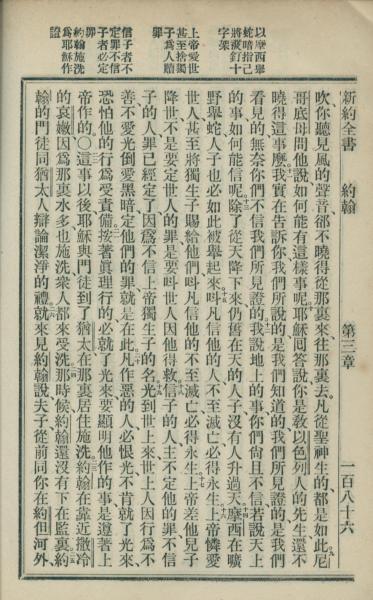 新約全書 約翰 第三章 一百八十六
以摩西舉
蛇暗指己
將來釘十
字架
上帝愛世
甚至捨獨
子爲人贖
罪
信子者不
定罪不信
子者必定
罪
約翰施洗
爲耶穌作
證
吹你聽見風的聲音卻不曉得從那裏來往那裏去凡從聖神生的都是如此尼
哥底母問他說如何能有這樣事呢耶穌回答說你是教以色列人的先生還不
曉得這事麽我實在告訴你我們所說的是我們知道的我們所見證的是我們
看見的無奈你們不信我們所見證的我說地上的事你們尙且不信若說天上
的事如何能信呢除了從天降下來仍舊在天的人子沒有人升過天摩西在曠
野舉蛇人子也必如此被舉起來呌凡信他的人不至滅亡必得永生上帝憐愛
世人甚至將獨生子賜給他們呌凡信他的不至滅亡必得永生上帝差他兒子
降世不是要定世人的罪是要呌世人因他得救信子的人主不定他的罪不信
子的人罪已經定了因爲不信上帝獨生子的名光到世上來世上人因行爲不
善不愛光倒愛黑暗定他們的罪就是在此凡作惡的人必恨光不肯就了光來
恐怕他的行爲受責備按著眞理行的必就了光來要顯明他作的事是遵著上
帝作的〇這事以後耶穌與門徒到了猶太在那裏居住施洗約翰在靠近撒冷
的哀嫩因爲那裏水多也施洗衆人都來受洗那時候約翰還沒有下在監裏約
翰的門徒同猶太人辯論潔淨的禮就來見約翰說夫子從前同你在約但河外